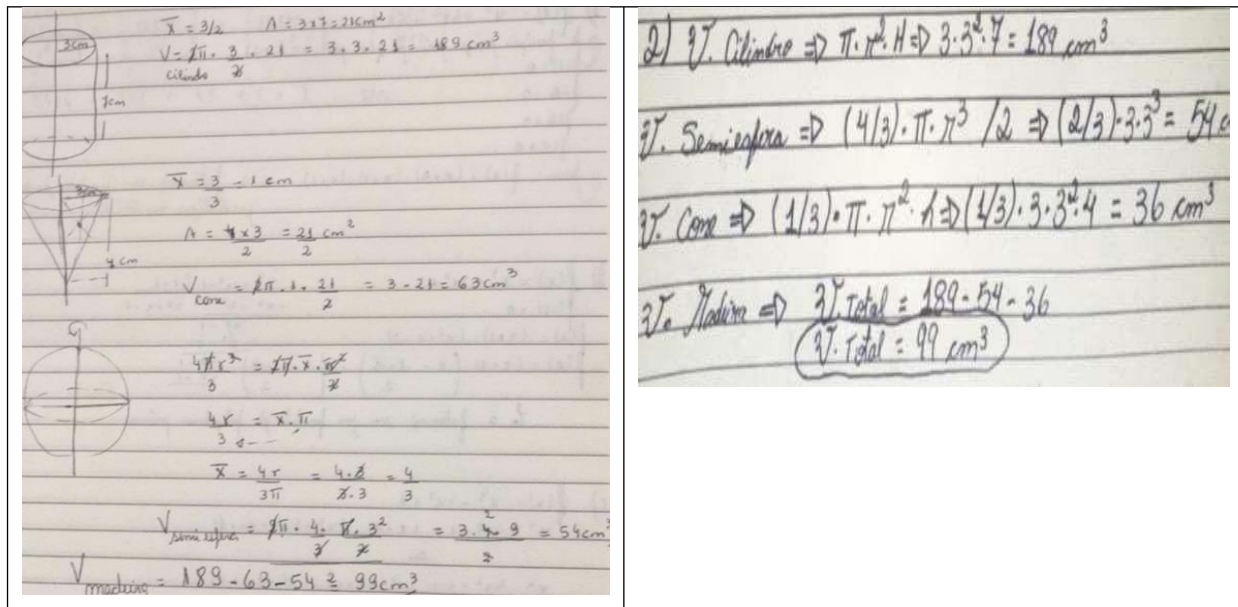 x̄ = 3/2 A = 3x7 = 21cm²
3cm
V = 2π . 3/2 . 21 = 3.3.21 = 189 cm³
cilindro
7cm
x̄ = 3/3 = 1 cm
3cm
A = x3/2 = 21/2 cm²
cm
V cone = 2π . 1 . 21/2 = 3.21 = 63cm³
4πr³/3 = 2π . x̄ . πr²/2
4r/3 = x̄ . π
x̄ = 4r/3π = 4.3/3.3 = 4/3
V semiesfera = 2π . 4/3 . π.3²/2 = 3.4.9/2 = 54cm³
2
V madeira = 189 - 63 - 54 = 99cm³
2) V. Cilindro => π.r².H => 3.3².7 = 189 cm³
V. Semiesfera => (4/3).π.r³ /2 => (2/3).3.3³ = 54 c
V. Cone => (1/3).π.r².h => (1/3).3.3².4 = 36 cm³
V. Madeira => V. Total = 189 - 54 - 36
V. Total = 99 cm³